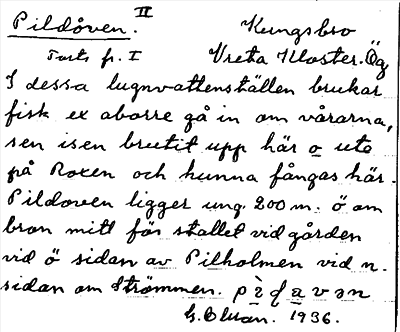 Pildöven. II Kungsbro
Forts fr. I Vreta Kloster. Ög
I dessa lugnvattenställen brukar
fisk ex aborre gå in om vårarna,
sen isen brutit upp här o ute
på Roxen och kunna fångas här.
Pildoven ligger ung. 200 m. ö om
bron mitt för stallet vid gården
vid ö sidan av Pilholmen vid n.
sidan om Strömmen.
1936.